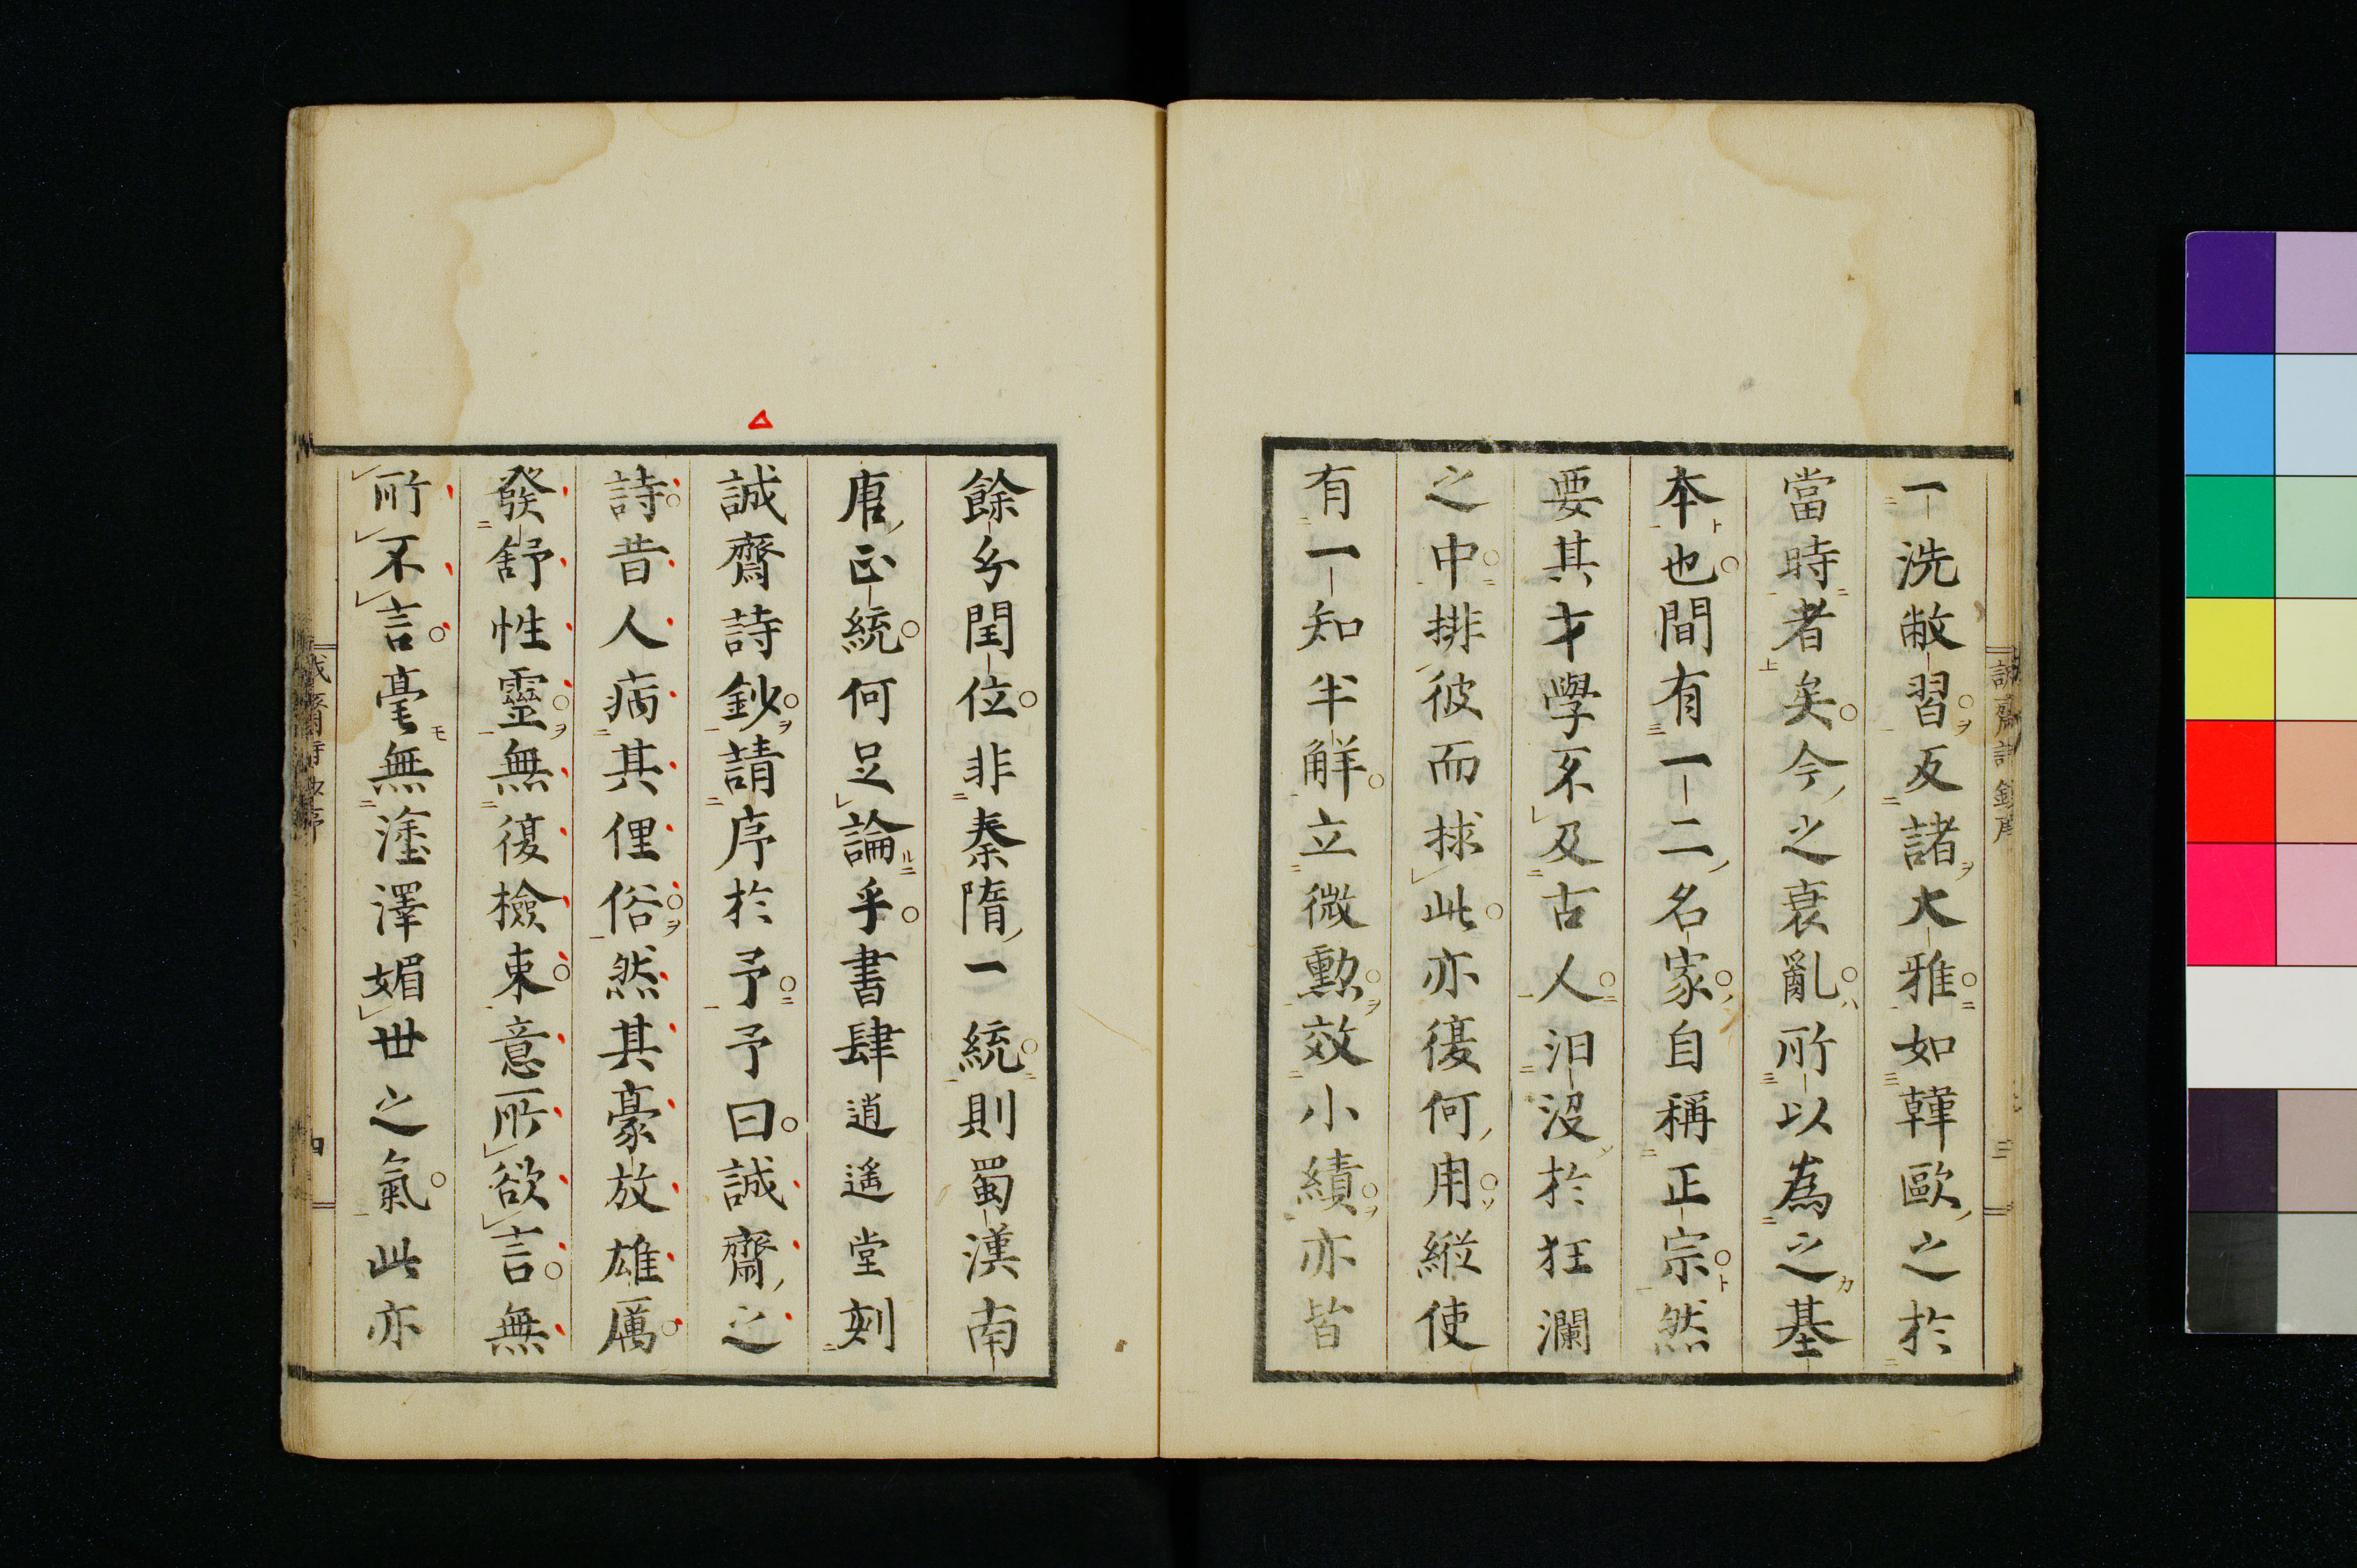 一洗敝習反諸大雅如韓歐之於
當時者矣今之衰亂所以為之基
本也間有一二名家自稱正宗然
要其才學不及古人汨沒於狂瀾
之中排彼而捄此亦復何用縱使
有一知半解立微勲效小績亦皆
餘分閏位非秦隋一統則蜀漢南
唐正統何足論乎書肆逍遙堂刻
誠齋詩鈔請序於予予曰誠齋之
詩昔人病其俚俗然其豪放雄厲
發舒性靈無復檢束意所欲言無
所不言毫無塗澤媚世之氣此亦
誠齋詩鈔序
三
誠齋詩鈔序
四